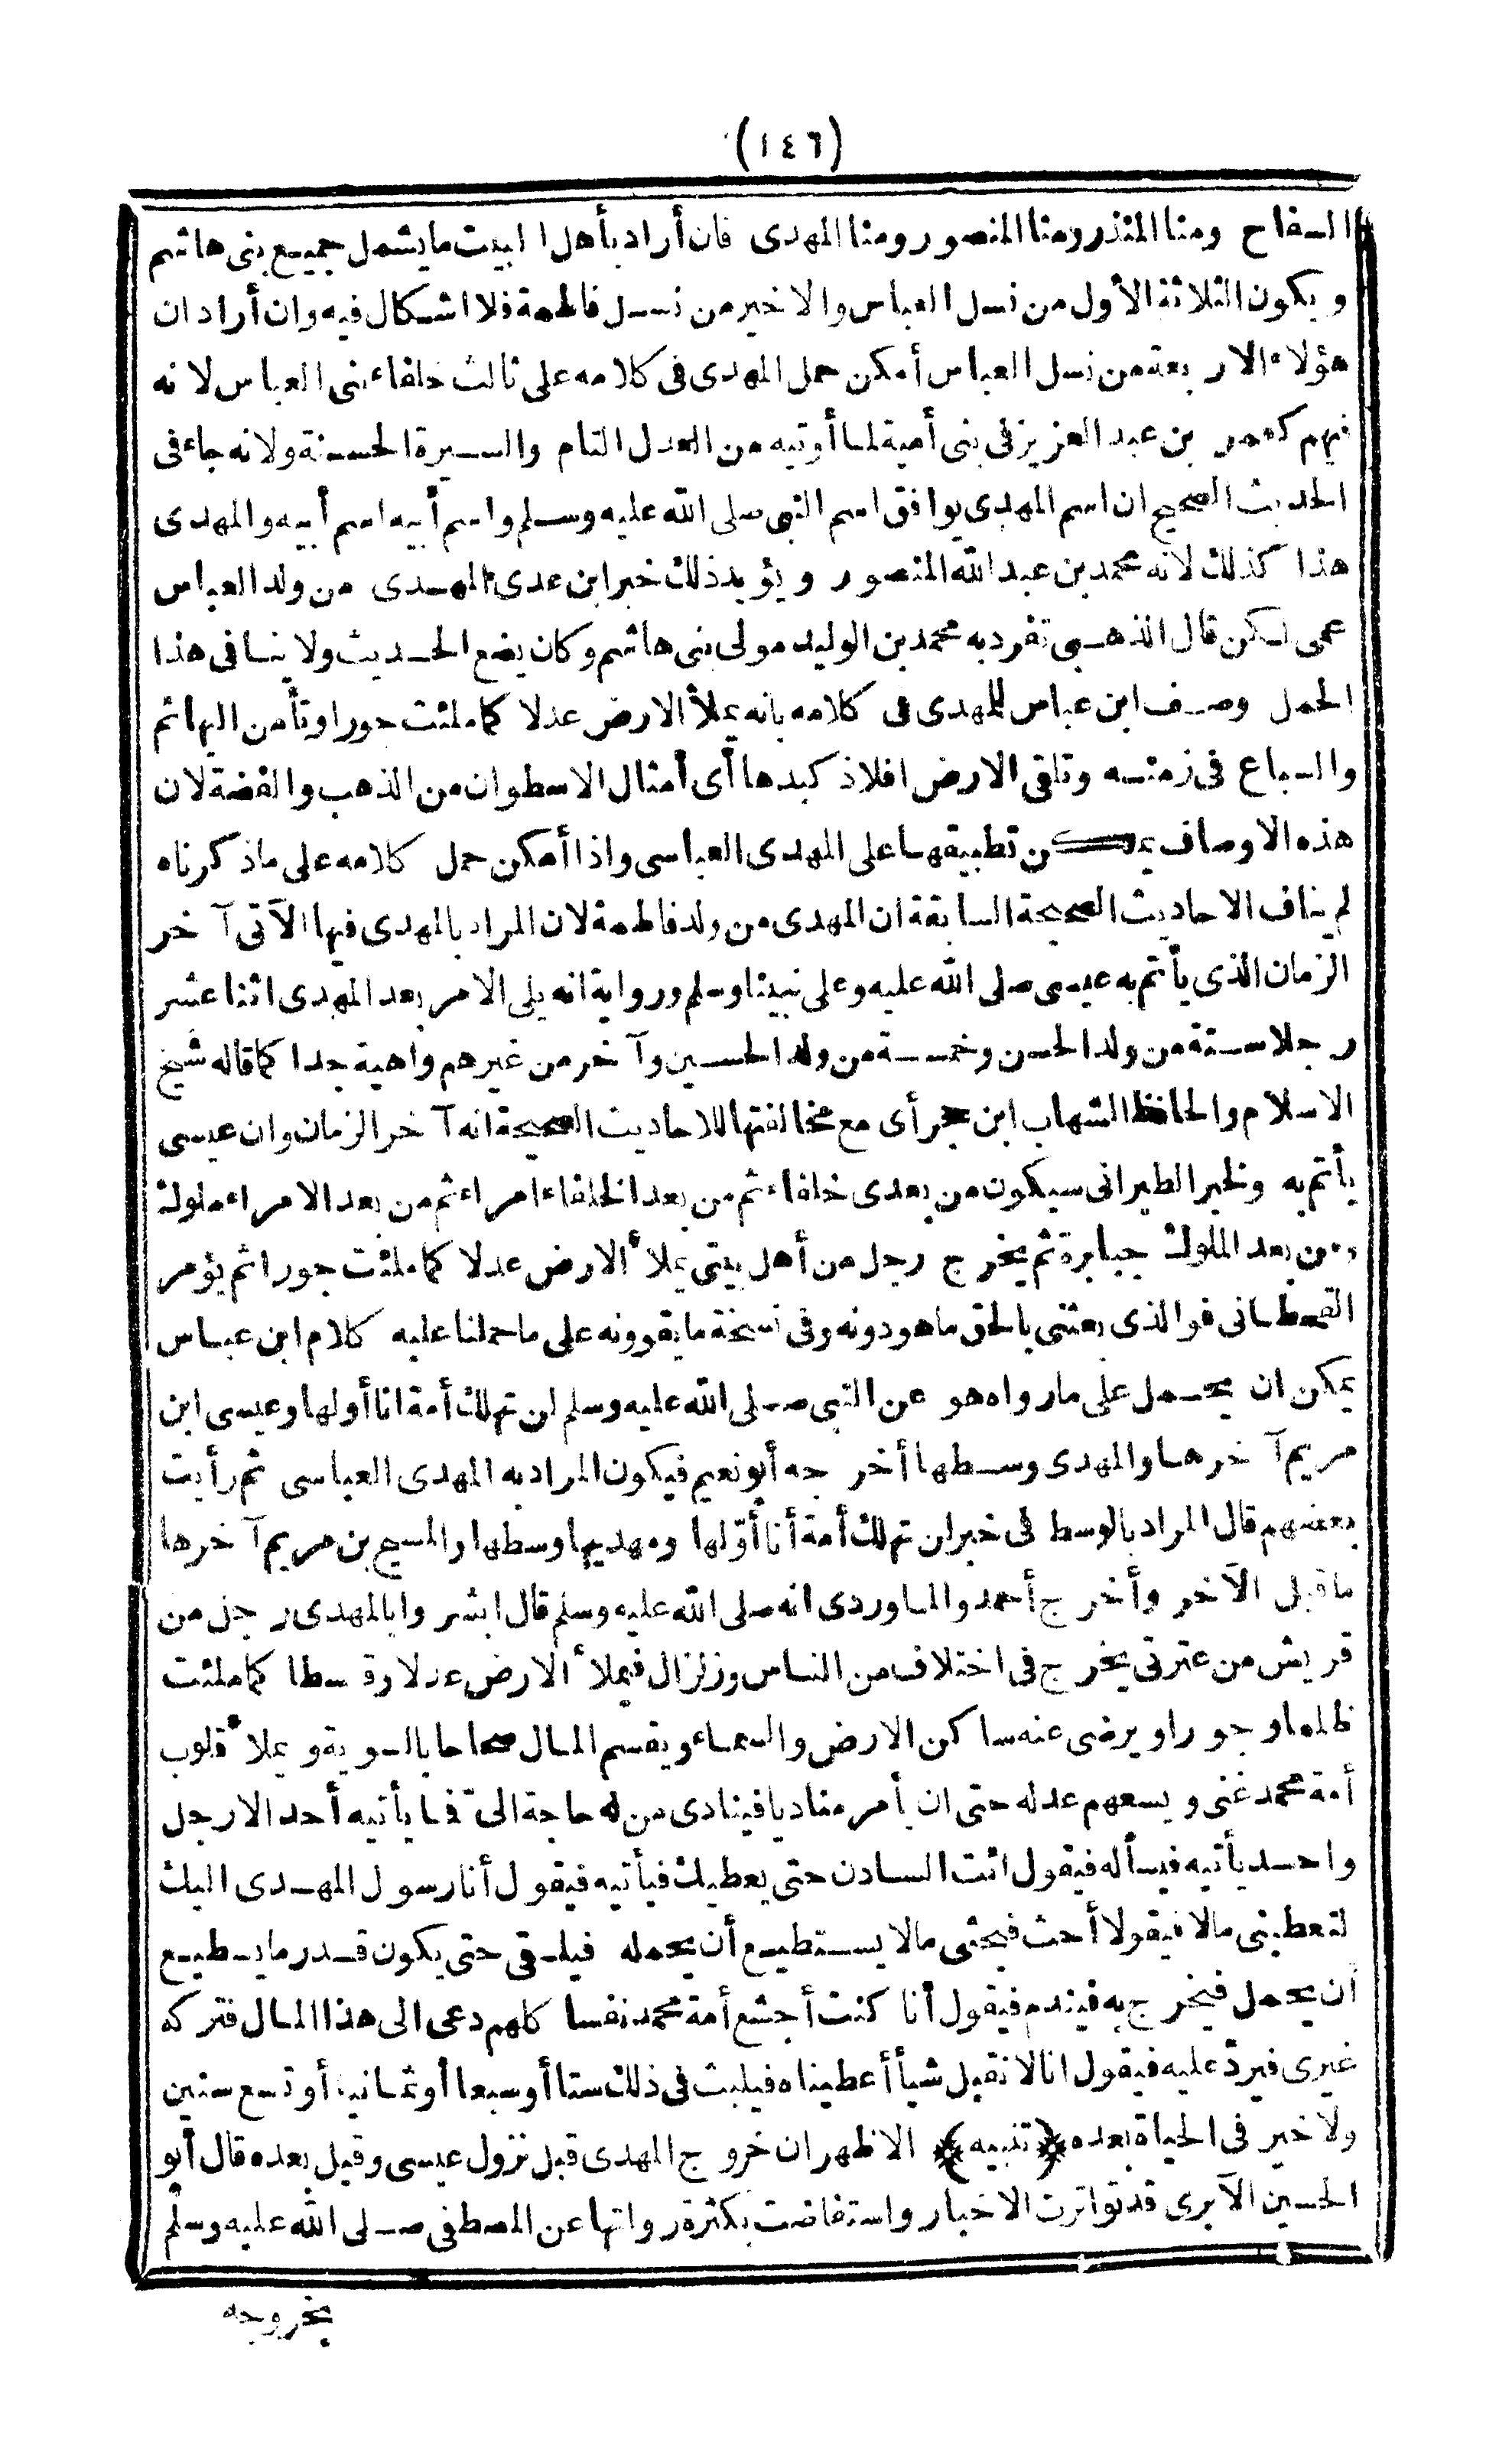 (١٤٦)
السفاح ومنا المنذر ومنا المنصور ومنا المهدى فان أراد بأهل البيت ما يشمل جميع بنى هاشم
ويكون الثلاثة الأول من نسل العباس والاخير من نسل فاطمة فلا اشكال فيه وان أراد ان
هؤلاء الاربعة من نسل العباس أمكن حمل المهدى فى كلامه على ثالث خلفاء بنى العباس لانه
فيهم كعمر بن عبد العزيز فى بنى أمية لما أوتيه من العدل التام والسيرة الحسنة ولانه جاء فى
الحديث الصحيح ان اسم المهدى يوافق اسم النبى صلى الله عليه وسلم واسم أبيه اسم أبيه والمهدى
هذا كذلك لانه محمد بن عبد الله المنصور ويؤيد ذلك خبر ابن عدى المهدى من ولد العباس
عمى لكن قال الذهبى تفرد به محمد بن الوليد مولى بنى هاشم وكان يضع الحديث ولا ينافى هذا
الحمل وصف ابن عباس للمهدى فى كلامه بانه يملأ الارض عدلا كما ملئت جورا وتأمن البهائم
والسباع فى زمنه وتلقى الارض افلاذ كبدها أى أمثال الاسطوان من الذهب والفضة لان
هذه الاوصاف يمكن تطبيقها على المهدى العباسى واذا أمكن حمل كلامه على ما ذكرناه
لم يناف الاحاديث الصحيحة السابقة ان المهدى من ولد فاطمة لان المراد بالمهدى فيها الآتى آخر
الزمان الذى يأتم به عيسى صلى الله عليه وعلى نبينا وسلم ورواية انه يلى الامر بعد المهدى اثنا عشر
رجلا ستة من ولد الحسن وخمسة من ولد الحسين وآخر من غيرهم واهية جدا كما قاله شيخ
الاسلام والحافظ الشهاب ابن حجر أى مع مخالفتها للاحاديث الصحيحة انه آخر الزمان وان عيسى
يأتم به ولخبر الطبرانى سيكون من بعدى خلفاء ثم من بعد الخلفاء امراء ثم من بعد الامراء ملوك
ومن بعد الملوك جبابرة ثم يخرج رجل من أهل بيتى يملأ الارض عدلا كما ملئت جورا ثم يؤمر
القحطانى فوالذى بعثنى بالحق ما هو دونه وفى نسخة ما يقوونه على ما حملنا عليه كلام ابن عباس
يمكن ان يحمل على ما رواه هو عن النبى صلى الله عليه وسلم لن تهلك أمة انا أولها وعيسى ابن
مريم آخرها والمهدى وسطها أخرجه أبو نعيم فيكون المراد به المهدى العباسى ثم رأيت
بعضهم قال المراد بالوسط فى خبر لن تهلك أمة أنا أوّلها ومهديها وسطها والمسيح بن مريم آخرها
ما قبل الآخر وأخرج أحمد والماوردى انه صلى الله عليه وسلم قال ابشروا بالمهدى رجل من
قريش من عترتى يخرج فى اختلاف من الناس وزلزال فيملأ الارض عدلا وقسطا كما ملئت
ظلما وجورا ويرضى عنه ساكن الارض والسماء ويقسم المال صحاحا بالسوية ويملأ قلوب
أمة محمد غنى ويسعهم عدله حتى ان يأمر مناديا فينادى من له حاجة الىّ فما يأتيه أحد الا رجل
واحد يأتيه فيسأله فيقول ائت السادن حتى يعطيك فيأتيه فيقول أنا رسول المهدى اليك
لتعطينى مالا فيقول أحث فيحثى مالا يستطيع أن يحمله فيلقى حتى يكون قدر ما يستطيع
أن يحمل فيخرج به فيندم فيقول أنا كنت أجشع أمة محمد نفسا كلهم دعى الى هذا المال فتركه
غيرى فيردّ عليه فيقول انا لا نقبل شيأ أعطيناه فيلبث فى ذلك ستا أو سبعا أو ثمانيا أو تسع سنين
ولا خير فى الحياة بعده ﴿تنبيه﴾ الاظهر ان خروج المهدى قبل نزول عيسى وقيل بعده قال أبو
الحسين الآبرى قد تواترت الاخبار واستفاضت بكثرة رواتها عن المصطفى صلى الله عليه وسلم
بخروجه